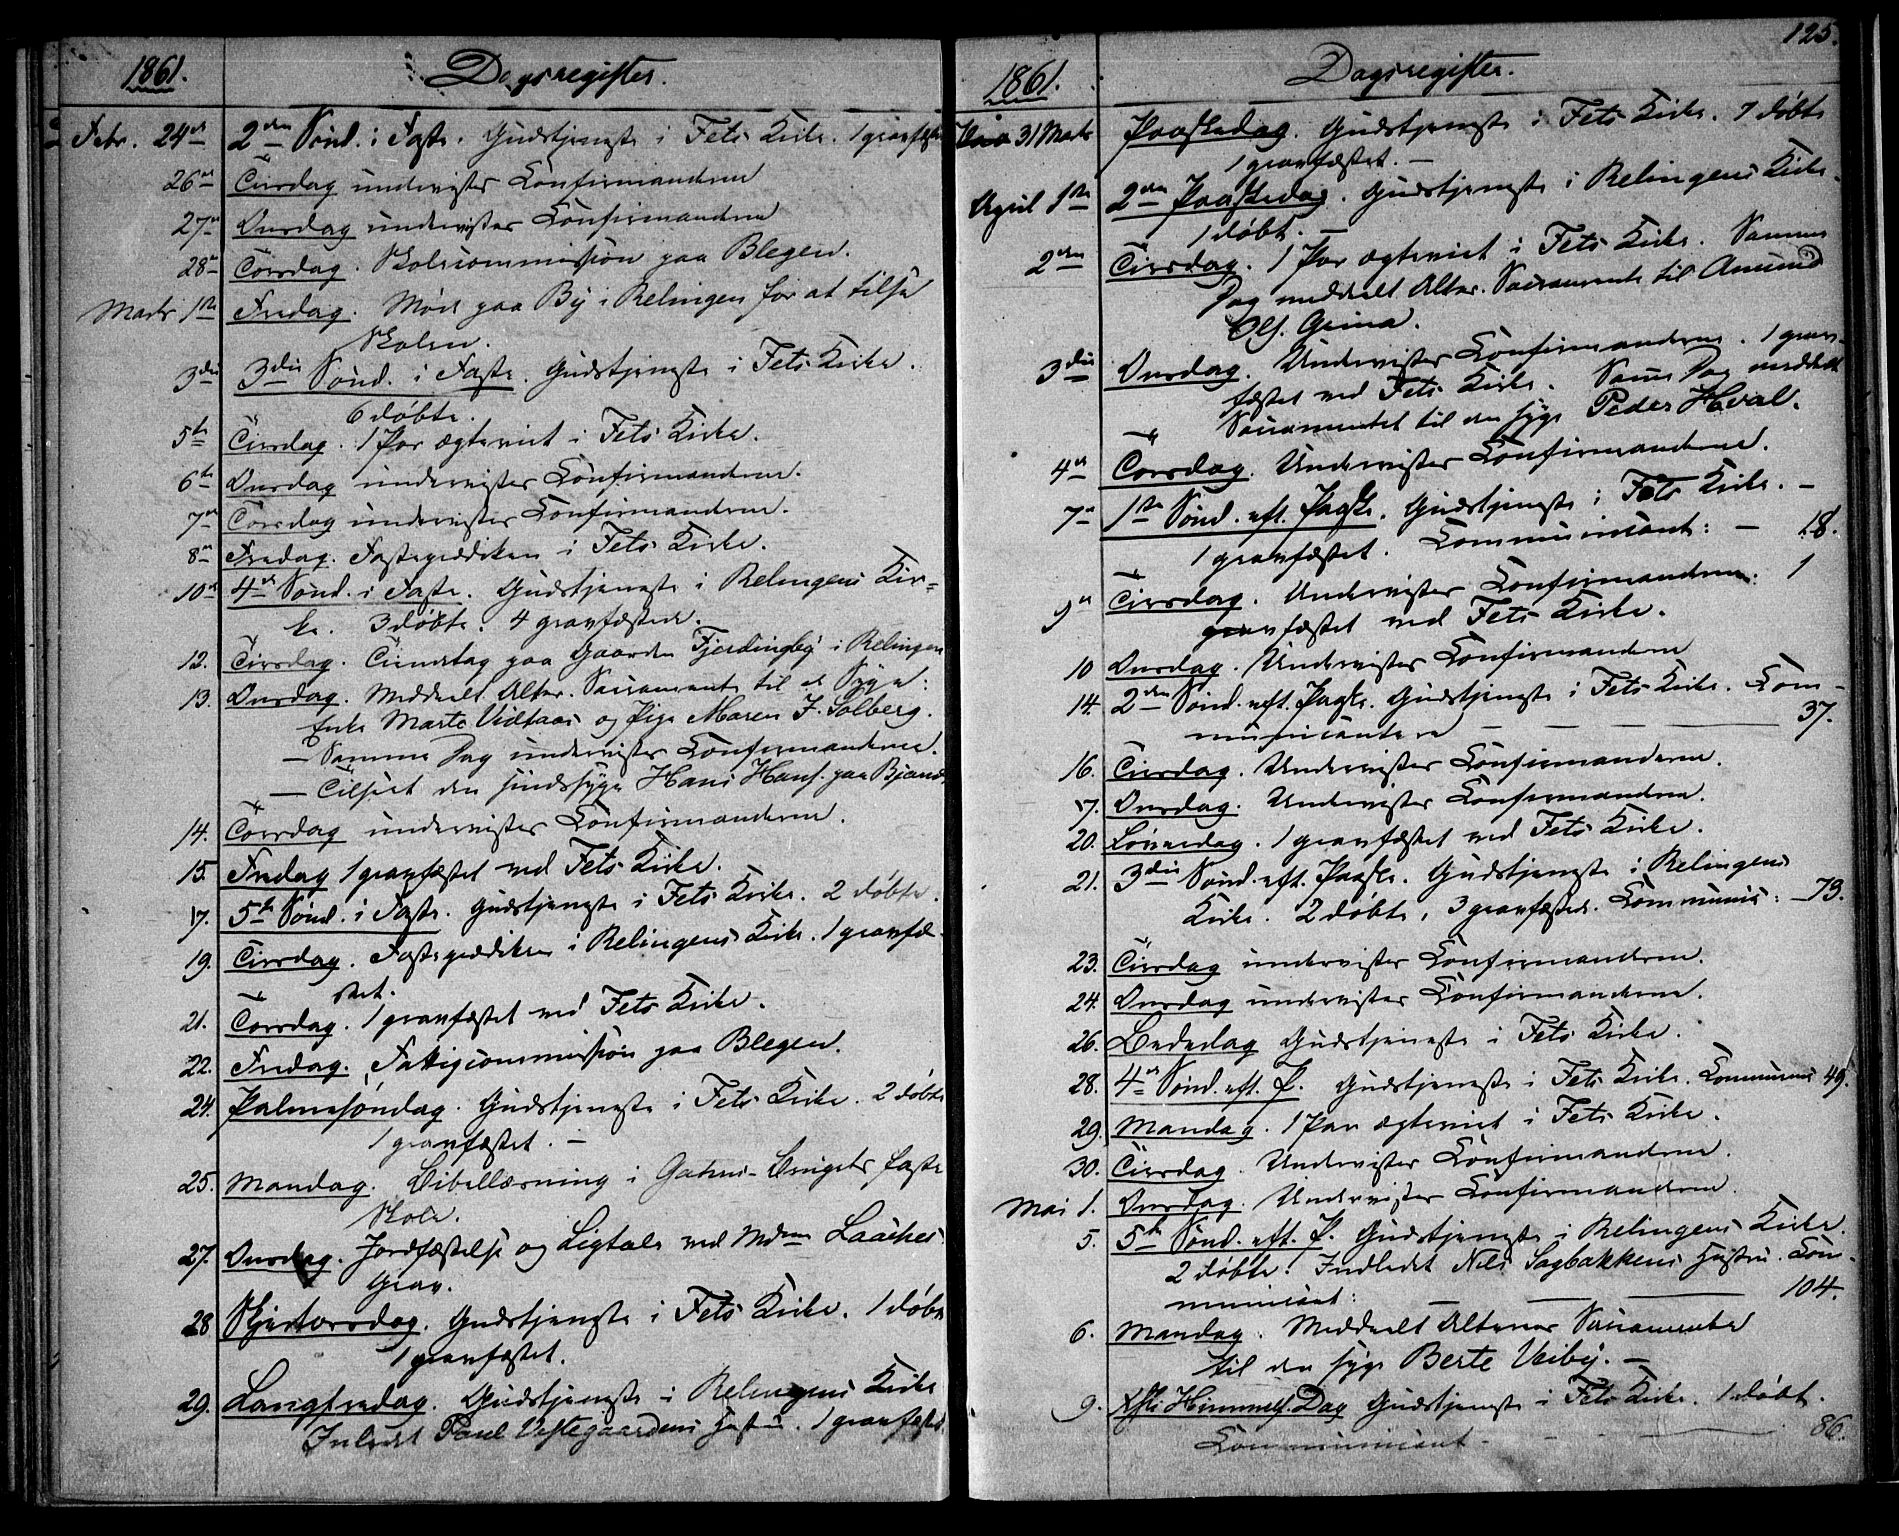 1861.
Dagsregister.
Febr. 24de 2den Sönd. i Faste. Gudstjeneste i Fets Kirke. 1 gravfæstet
26de Tirsdag undervistes Confirmanderne
27de Onsdag undervistes Confirmanderne
28de Torsdag. Skolecommission paa Blegen.
Marts 1ste Fredag. Møde paa By i Relingen for at tilse
Skolen.
3die 3die Sönd. i Faste. Gudstjeneste i Fets Kirke.
6 døbte.
5te Tirsdag. 1 Par ægteviet i Fets Kirke.
6te Onsdag undervistes Confirmanderne.
7de Torsdag undervistes Confirmanderne.
8de Fredag. Fasteprædiken i Fets Kirke.
10de 4de Sönd. i Faste. Gudstjeneste i Relingens Kir-
ke. 3 døbte. 4 gravfæstede.
12. Tirsdag. Tiendetag paa Gaarden Fjerdingby i Relingen
13. Onsdag. Meddeelt Alter. Sacramente til 2 Syge:
Enke Marte Vidtaas og Pige Maren J. Solberg.
— Samme Dag undervistes Confirmanderne.
— Tilseet den sindssyge Hans Hans. paa
14. Torsdag undervistes Confirmanderne.
15. Fredag 1 gravfæstet ved Fets Kirke.
17. 5te Sönd. i Faste. Gudstjeneste i Fets Kirke. 2 døbte.
19. Tirsdag. Fasteprædiken i Relingens Kirke. 1 gravfæ-
stet.
21. Torsdag. 1 gravfæstet ved Fets Kirke.
22. Fredag. Fattigcommission paa Blegen.
24. Palmesøndag. Gudstjeneste i Fets Kirke. 2 døbte
1 gravfæstet. —
25. Mandag. Bibellæsning i faste
Skole.
27. Onsdag. Jordfæstelse og Ligtale ved Mdme Laaches
Grav.
28 Skjertorsdag. Gudstjeneste i Fets Kirke. 1 døbt
1 gravfæstet.
29. Langfredag. Gudstjeneste i Relingens Kirke
Inledet Paul Vestegaardens Hustru. 1 gravfæstet.
125.
1861.
Dagsregister.
31 Marts Paaskedag. Gudstjeneste i Fets Kirke. 7 døbte
1 gravfæstet. —
April 1ste 2den Paaskedag. Gudstjeneste i Relingens Kirke.
1 døbt. —
2den Tirsdag. 1 Par ægteviet i Fets Kirke. Samme
Dag meddeelt Alter. Sacramente til Amund
Ols. Grina.
3die Onsdag. Undervistes Confirmanderne. 1 grav-
fæstet ved Fets Kirke. Same Dag meddeelt
Sacramentet til den syge Peder Hval.
4de Torsdag. Undervistes Confirmanderne.
7de 1ste Sönd. eft. Paaske. Gudstjeneste i Fets Kirke. —
1 gravfæstet. Communicant: — 18.
9de Tirsdag. Undervistes Confirmanderne: 1
gravfæstet ved Fets Kirke.
10 Onsdag. Undervistes Confirmanderne
14. 2den Sönd. eft. Paaske. Gudstjeneste i Fets Kirke. Com-
municantere — — 37.
16. Tirsdag. Undervistes Confirmanderne.
17. Onsdag. Undervistes Confirmanderne.
20. Løverdag. 1 gravfæstet ved Fets Kirke.
21. 3die Sönd. eft. Paaske. Gudstjeneste i Relingens
Kirke. 2 døbte, 3 gravfæstede. Communic: — 73.
23. Tirsdag undervistes Confirmanderne.
24. Onsdag undervistes Confirmanderne.
26. Bededag Gudstjeneste i Fets Kirke.
28. 4de Sönd. eft. P. Gudstjeneste i Fets Kirke. Communic 49.
29. Mandag. 1 Par ægteviet i Fets Kirke.
30. Tirsdag. Undervistes Confirmanderne.
Mai 1. Onsdag. Undervistes Confirmanderne.
5. 5te Sönd. eft. P. Gudstjeneste i Relingens Kirke.
2 døbte. Indledet Nils Sagbakkens Hustru. Com-
municant: — — — 104.
6. Mandag. Meddeelt Alterens Sacramente
til den syge Berte Veiby. —
9. Xsti Himmelf. Dag Gudstjeneste i Fets Kirke. 1 døbt.
Communicant - - - - 86.